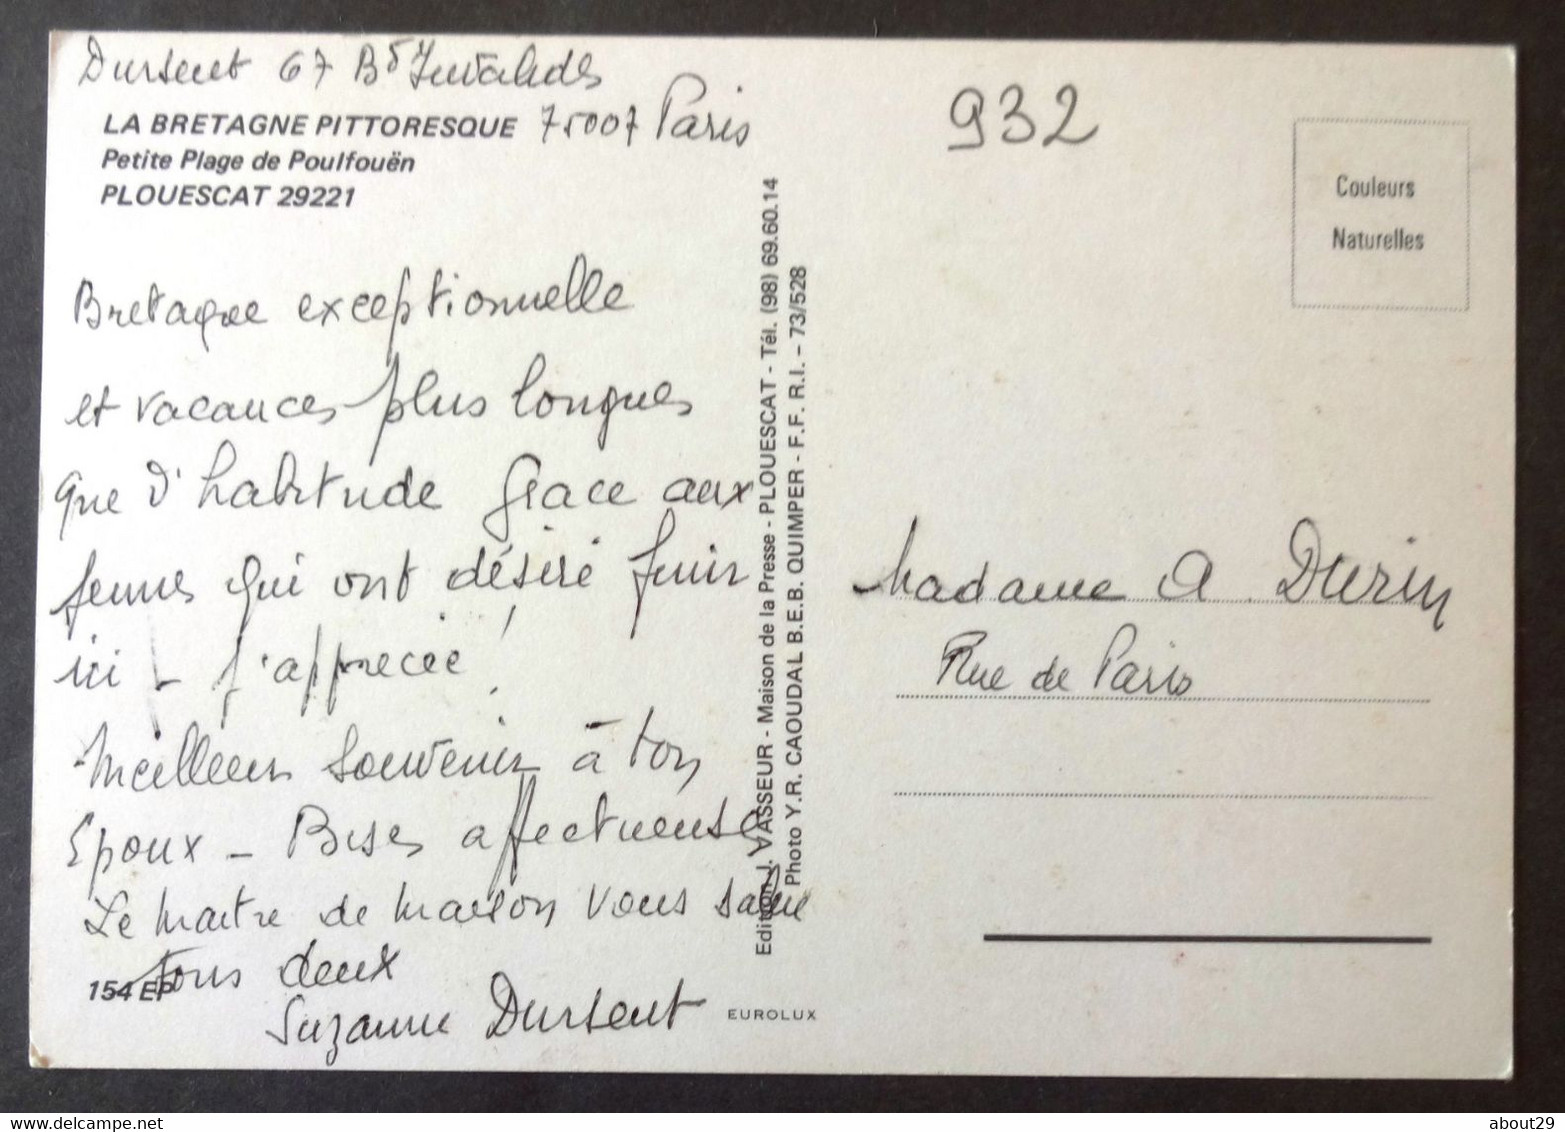 Dursent 67 Bd Invalides
75007 Paris
LA BRETAGNE PITTORESQUE
Petite Plage de Poulfouën
PLOUESCAT 29221
Bretagne exceptionnelle
et vacances plus longues
que d'habitude grace aux
jeunes qui ont désiré finir
ici - j'apprecie!
Meilleur souvenir à ton
Epoux - Bises affectueuses
Le maitre de maison vous salue
tous deux
Suzanne Dursent
154 EP
Edition J. VASSEUR - Maison de la Presse - PLOUESCAT - Tél. (98) 69.60.14
Photo Y.R. CAOUDAL B.E.B. QUIMPER - F.F. R.I. - 73/528
EUROLUX
932
Couleurs
Naturelles
Madame A Durin
Rue de Paris
about29